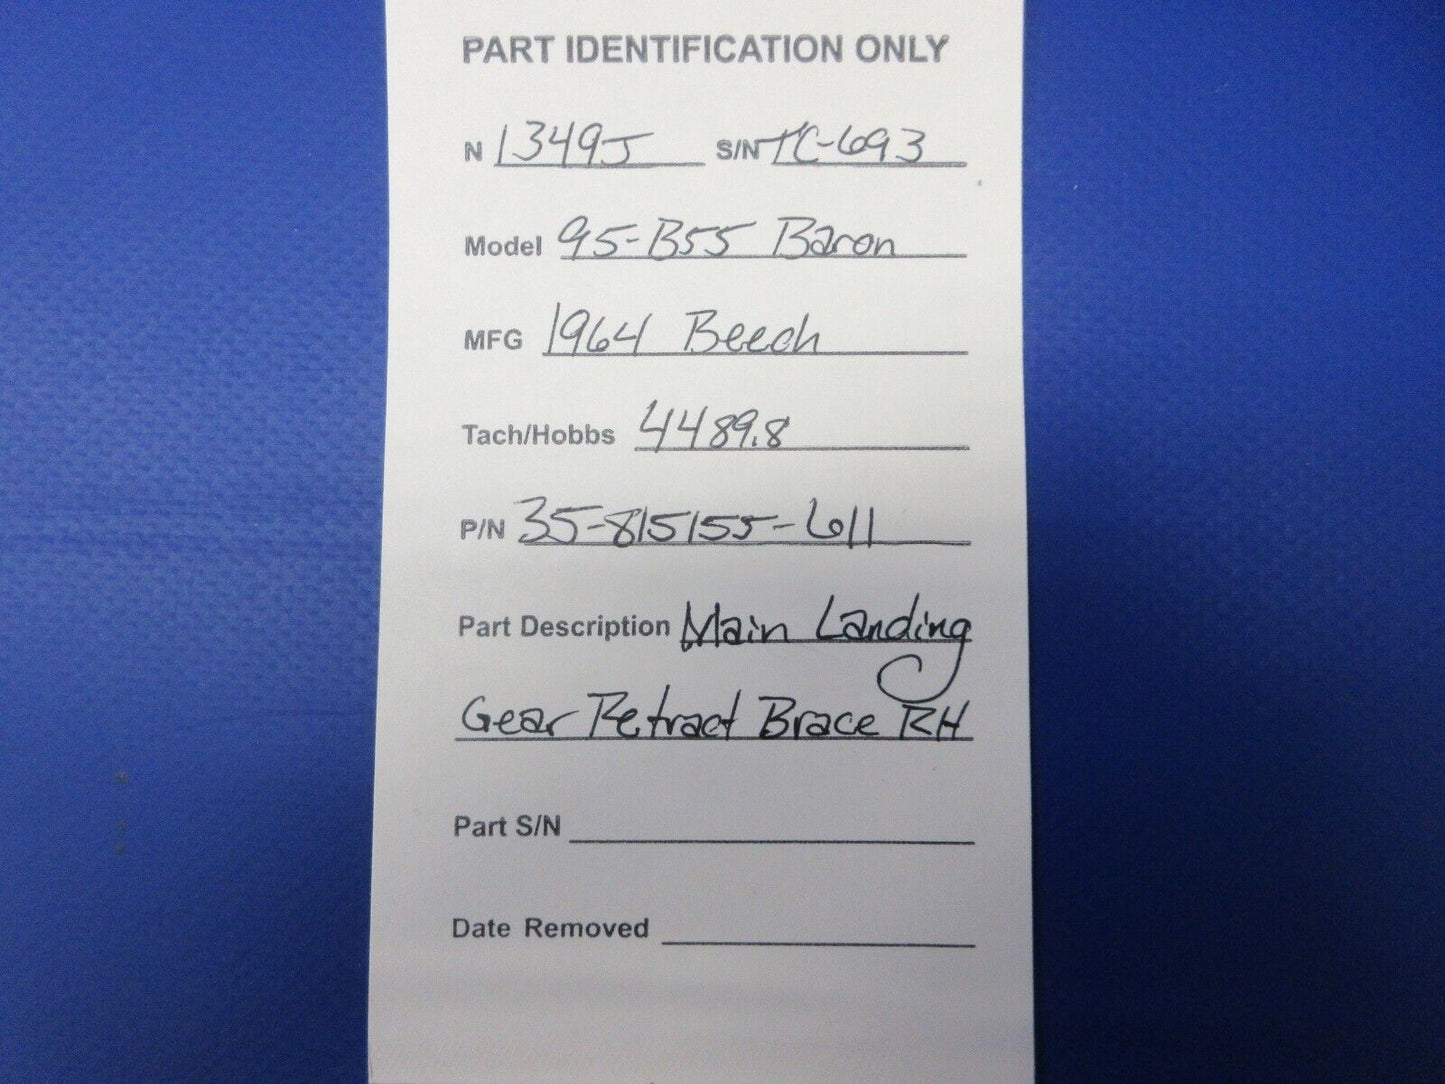 PART IDENTIFICATION ONLY
N 1349J S/N TC-693
Model 95-B55 Baron
MFG 1964 Beech
Tach/Hobbs 4489.8
P/N 35-815155-611
Part Description Main Landing
Gear Retract Brace RH
Part S/N
Date Removed